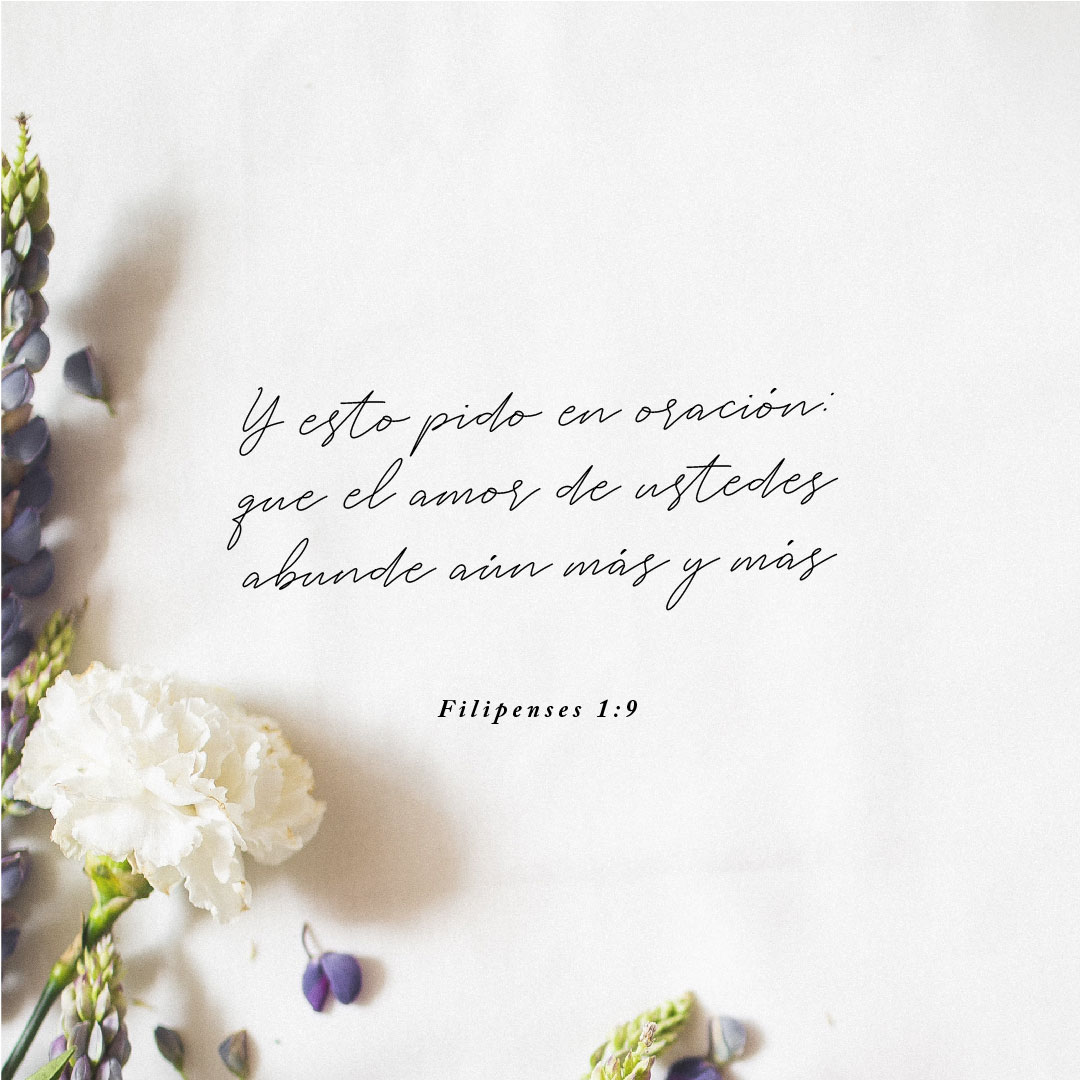 Y esto pido en oración:
que el amor de ustedes
abunde aún más y más
Filipenses 1:9